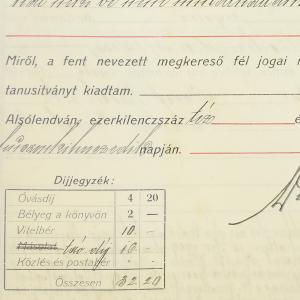 Miről, a fent nevezett megkereső fél jogai
tanusítványt kiadtam.
Alsólendván, ezerkilenczszáz tíz
huszonkilenczedik napján.
Díjjegyzék:
Óvásdíj 4 20
Bélyeg a könyvön 2 —
Vitelbér 10 —
Másolat írásdíj 16 —
Közlés és postabér - —
Összesen 32 20